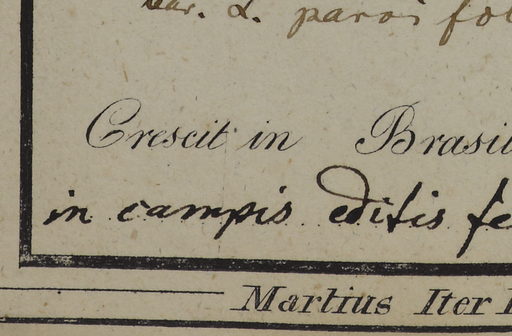 var. α. parvi fol
Crescit in Brasil
in campis editis fe
Martius Iter